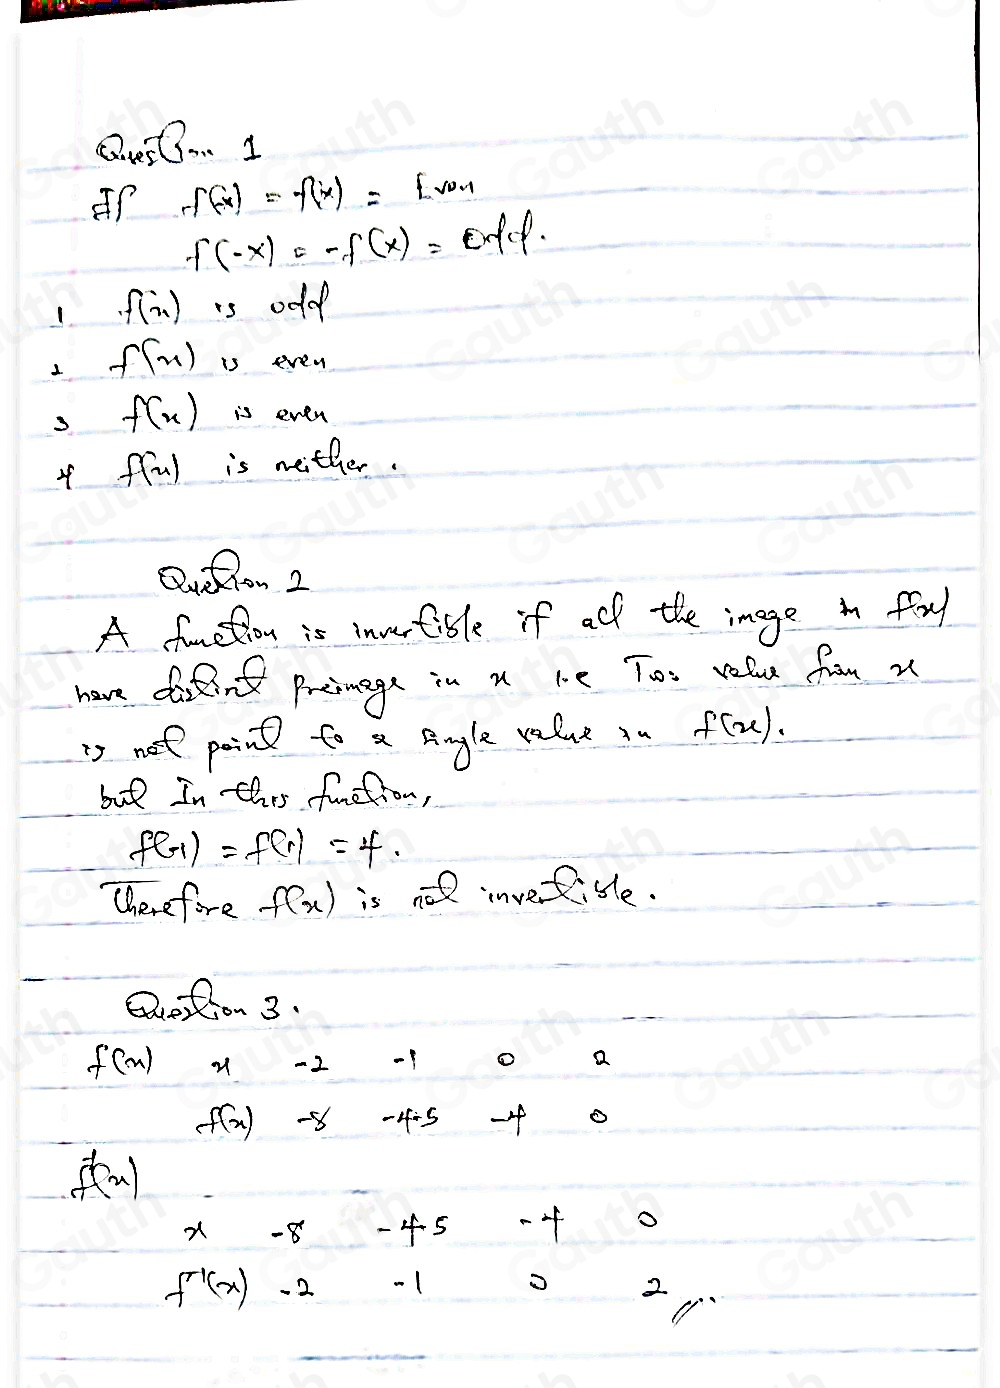 Question 1
If f(-x) = f(x) = Even
f(-x) = -f(x) = Odd.
1 f(x) is odd
2 f(x) is even
3 f(x) is even
4 f(x) is neither.
Question 2
A function is invertible if all the image in f(x)
have distinct preimage in x i.e Two value from x
is not point to a single value in f(x).
but In this function,
f(-1) = f(1) = 4.
Therefore f(x) is not invertible.
Question 3.
f(x) x -2 -1 0 2
f(x) -8 -4.5 -4 0
f⁻¹(x)
x -8 -4.5 -4 0
f⁻¹(x) -2 -1 0 2